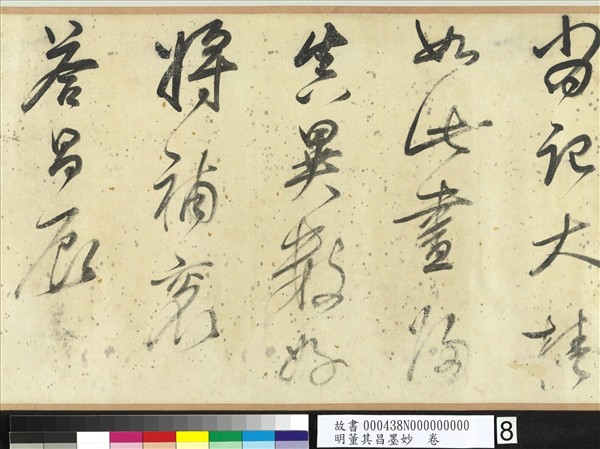 尚記大
如此晝歸
真異數好
將補衮
答昌辰
故書 000438N000000000
明董其昌墨妙 卷
8